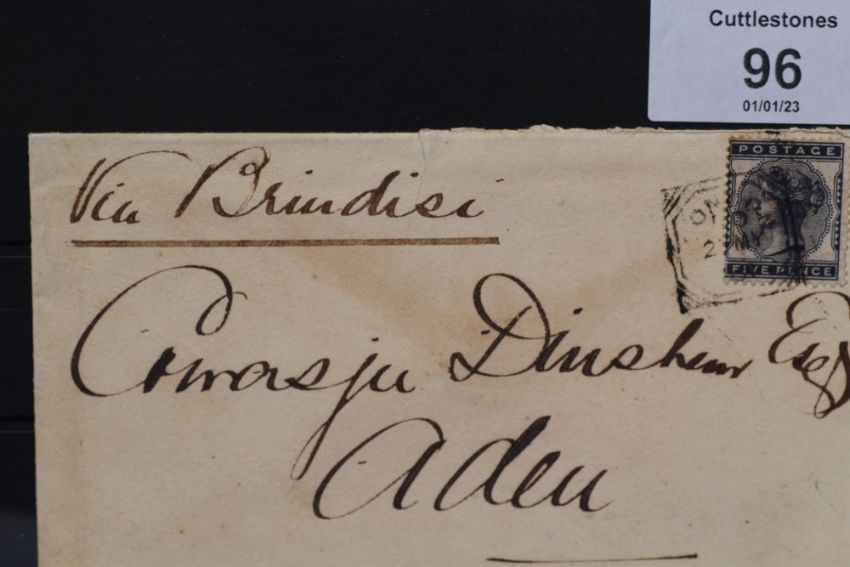 Cuttlestones
96
01/01/23
POSTAGE
FIVE PENCE
Via Brindisi
Cowasjee Dinshaw Esq
Aden